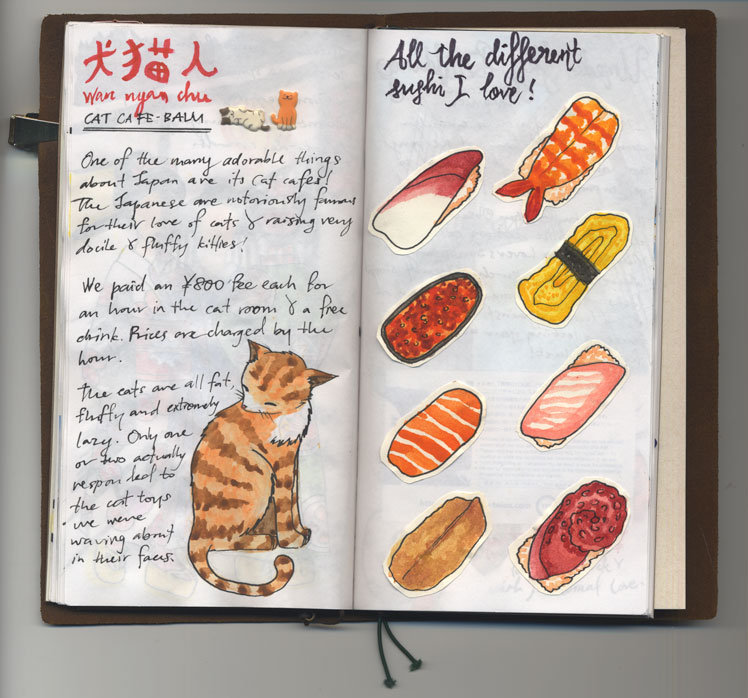 犬猫人
wan nyan chu
CAT CAFE-BALU
One of the many adorable things
about Japan are its Cat cafes!
The Japanese are notoriously famous
for their love of cats & raising very
docile & fluffy kitties!
We paid an ¥800 fee each for
an hour in the cat room & a free
drink. Prices are charged by the
hour.
The cats are all fat,
fluffy and extremely
lazy. Only one
or two actually
responded to
the cat toys
we were
waving about
in their faces.
All the different
sushi I love!